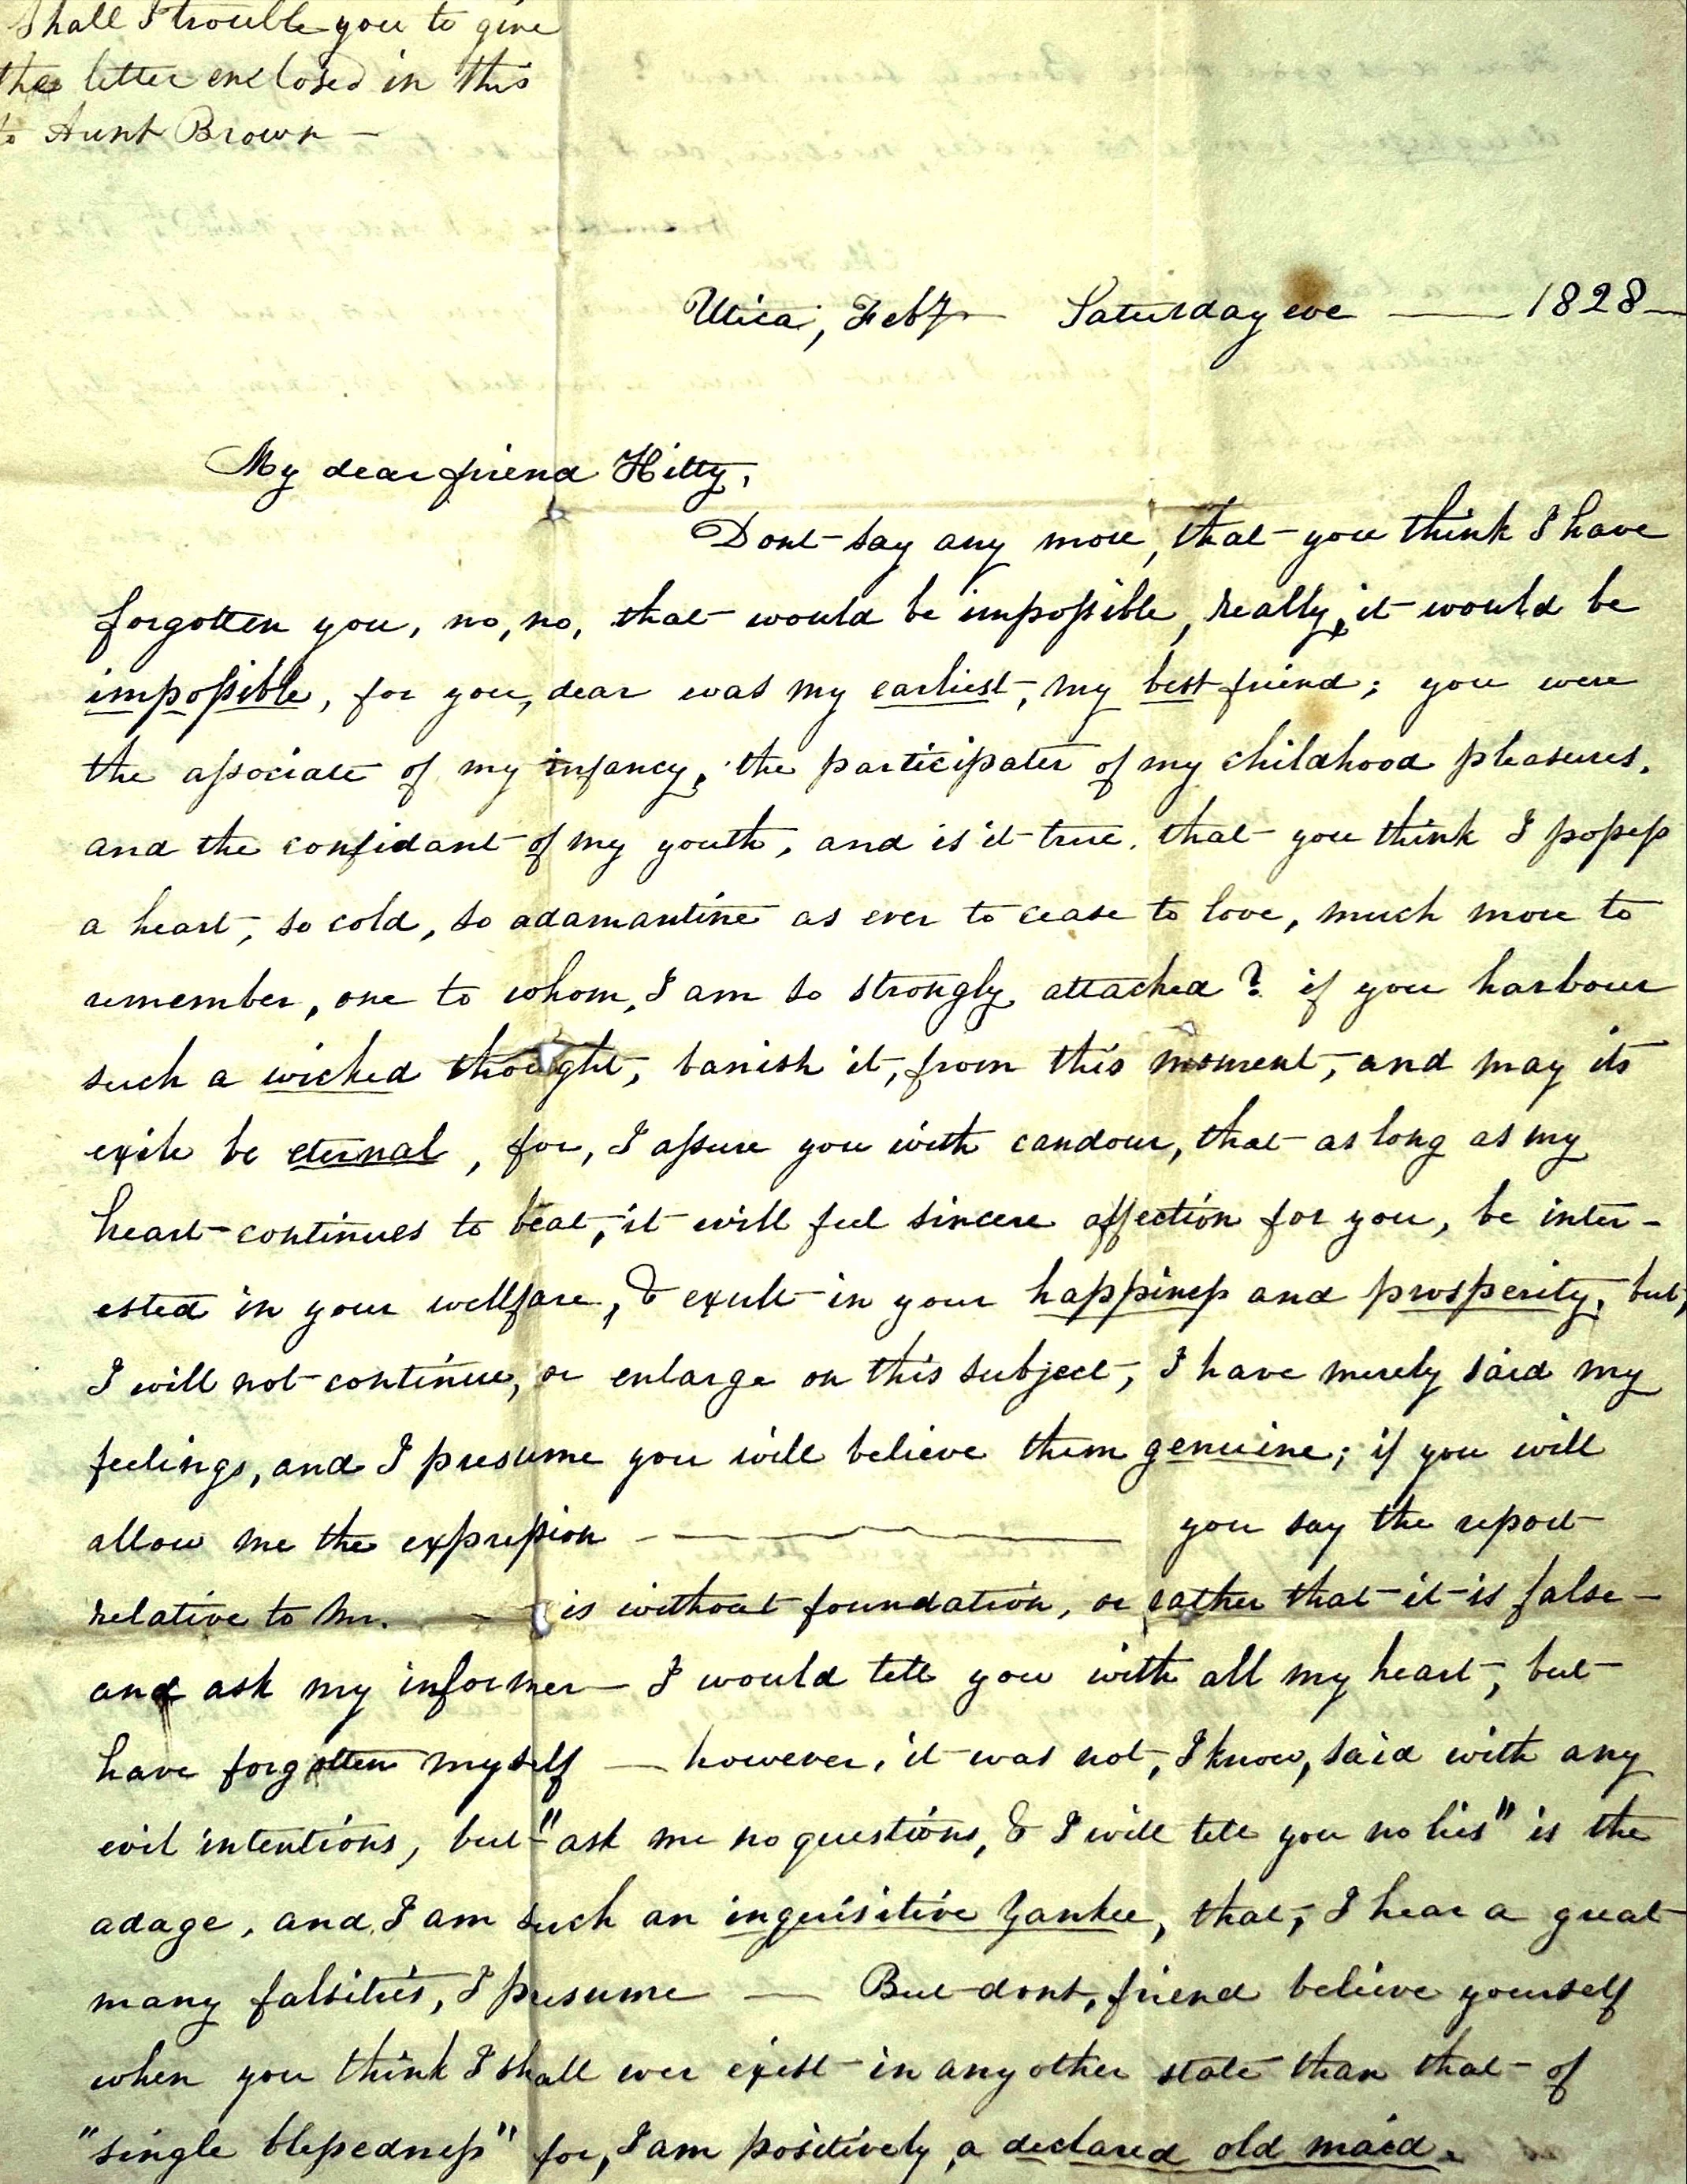 Shall I trouble you to give
the letter enclosed in this
to Aunt Brown —
Utica, Feb 7 — Saturday eve — 1828 —
My dear friend Hitty,
Dont say any more, that you think I have
forgotten you, no, no, that would be impossible, really, it would be
impossible, for you, dear was my earliest, my best friend; you were
the associate of my infancy, the participater of my childhood pleasures,
and the confidant of my youth, and is it true, that you think I possess
a heart, so cold, so adamantine as ever to cease to love, much more to
remember, one to whom, I am so strongly attached? if you harbour
such a wicked thought, banish it, from this moment, and may its
exile be eternal, for, I assure you with candour, that as long as my
heart continues to beat, it will feel sincere affection for you, be inter-
ested in your wellfare, & exult in your happiness and prosperity, but,
I will not continue, or enlarge on this subject, I have merely said my
feelings, and I presume you will believe them genuine; if you will
allow me the expression — you say the report
relative to Mr. — — is without foundation, or rather that it is false —
and ask my informer — I would tell you with all my heart, but
have forgotten myself — however, it was not, I know, said with any
evil intentions, but "ask me no questions, & I will tell you no lies" is the
adage, and I am such an inquisitive Yankee, that, I hear a great
many falsities, I presume — But dont, friend believe yourself
when you think I shall ever exist in any other state than that of
"single blessedness" for, I am positively, a declared old maid.